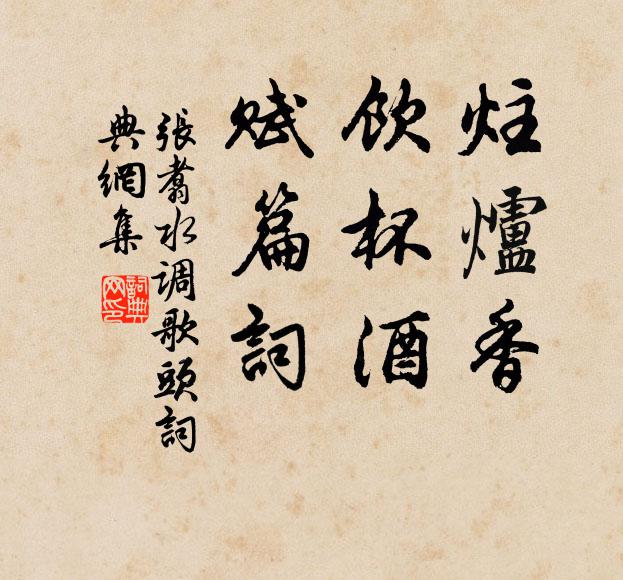 炷爐香
飲杯酒
賦篇詞
張翥水調歌頭詞
典網集
詞典網印